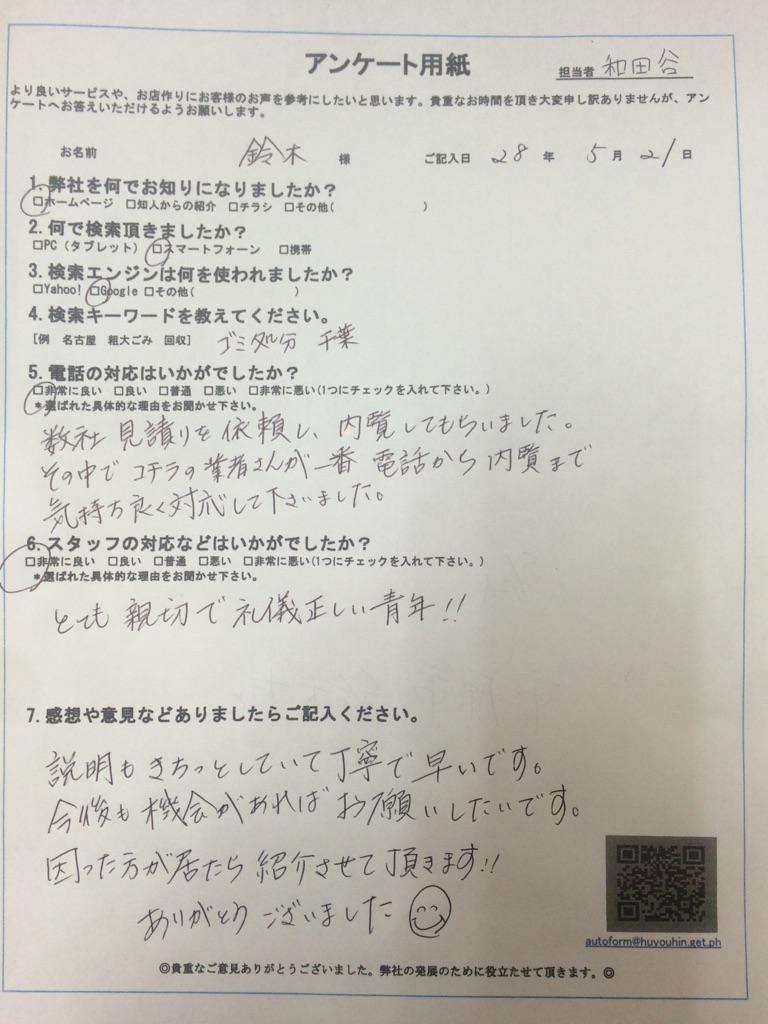 アンケート用紙
担当者 和田谷
より良いサービスや、お店作りにお客様のお声を参考にしたいと思います。貴重なお時間を頂き大変申し訳ありませんが、アン
ケートへお答えいただけるようお願いします。
お名前 鈴木 様 ご記入日 28 年 5 月 21 日
1. 弊社を何でお知りになりましたか?
□ホームページ □知人からの紹介 □チラシ □その他( )
2. 何で検索頂きましたか?
□PC(タブレット) □スマートフォーン □携帯
3. 検索エンジンは何を使われましたか?
□Yahoo! □Google □その他( )
4. 検索キーワードを教えてください。
[例 名古屋 粗大ごみ 回収] ゴミ処分 千葉
5. 電話の対応はいかがでしたか?
□非常に良い □良い □普通 □悪い □非常に悪い(1つにチェックを入れて下さい。)
*選ばれた具体的な理由をお聞かせ下さい。
数社 見積りを依頼し、内覧してもらいました。
その中で コチラの業者さんが一番 電話から内覧まで
気持ち良く対応して下さいました。
6. スタッフの対応などはいかがでしたか?
□非常に良い □良い □普通 □悪い □非常に悪い(1つにチェックを入れて下さい。)
*選ばれた具体的な理由をお聞かせ下さい。
とても 親切で 礼儀正しい青年!!
7. 感想や意見などありましたらご記入ください。
説明もきちっとしていて丁寧で早いです。
今後も機会があればお願いしたいです。
困った方が居たら紹介させて頂きます!!
ありがとうございました
autoform@huyouhin.get.ph
◎貴重なご意見ありがとうございました。弊社の発展のために役立たせて頂きます。◎